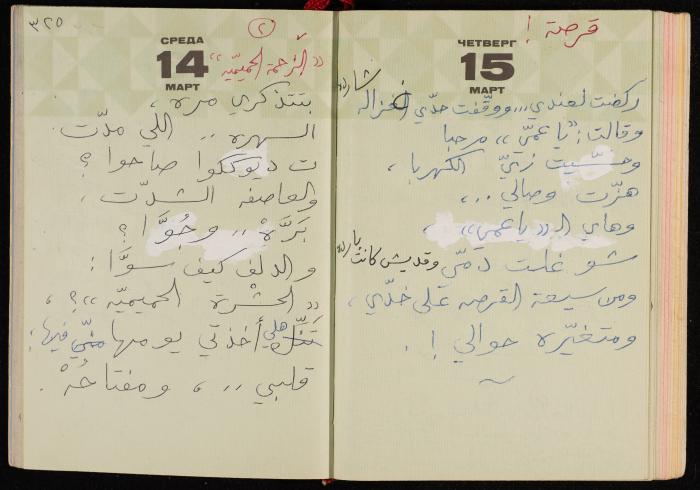 ٣٢٥
٢
СРЕДА
14
МАРТ
"الزحمة الحميميّه"
بتتذكري مره،
السهره .. اللي مدّت
ت ديوككوا صاحوا؟
والعاصفه الشدّت،
بَرَّهْ .. وجُوَّا؟
والدلف كيف سوَّا:
"الحشْرة الحميميّه"؟،
هللي أخذتي يومها منّي فيها:
قلبي ..، ومفتاحُهْ.
قرصة!
ЧЕТВЕРГ
15
МАРТ
ركضت لعندي... ووقّفت حدّي الغزاله
وقالت: "يا عمّي" مرحبا
وحسّيت زيّ الكهربا،
هزّت وصالي ..،
وهاي الـ "يا عمي"،
شو غلت دمّي وقديش كانت
ومن سيعة القرصه على خدّي،
ومتغيّره حوالي!.